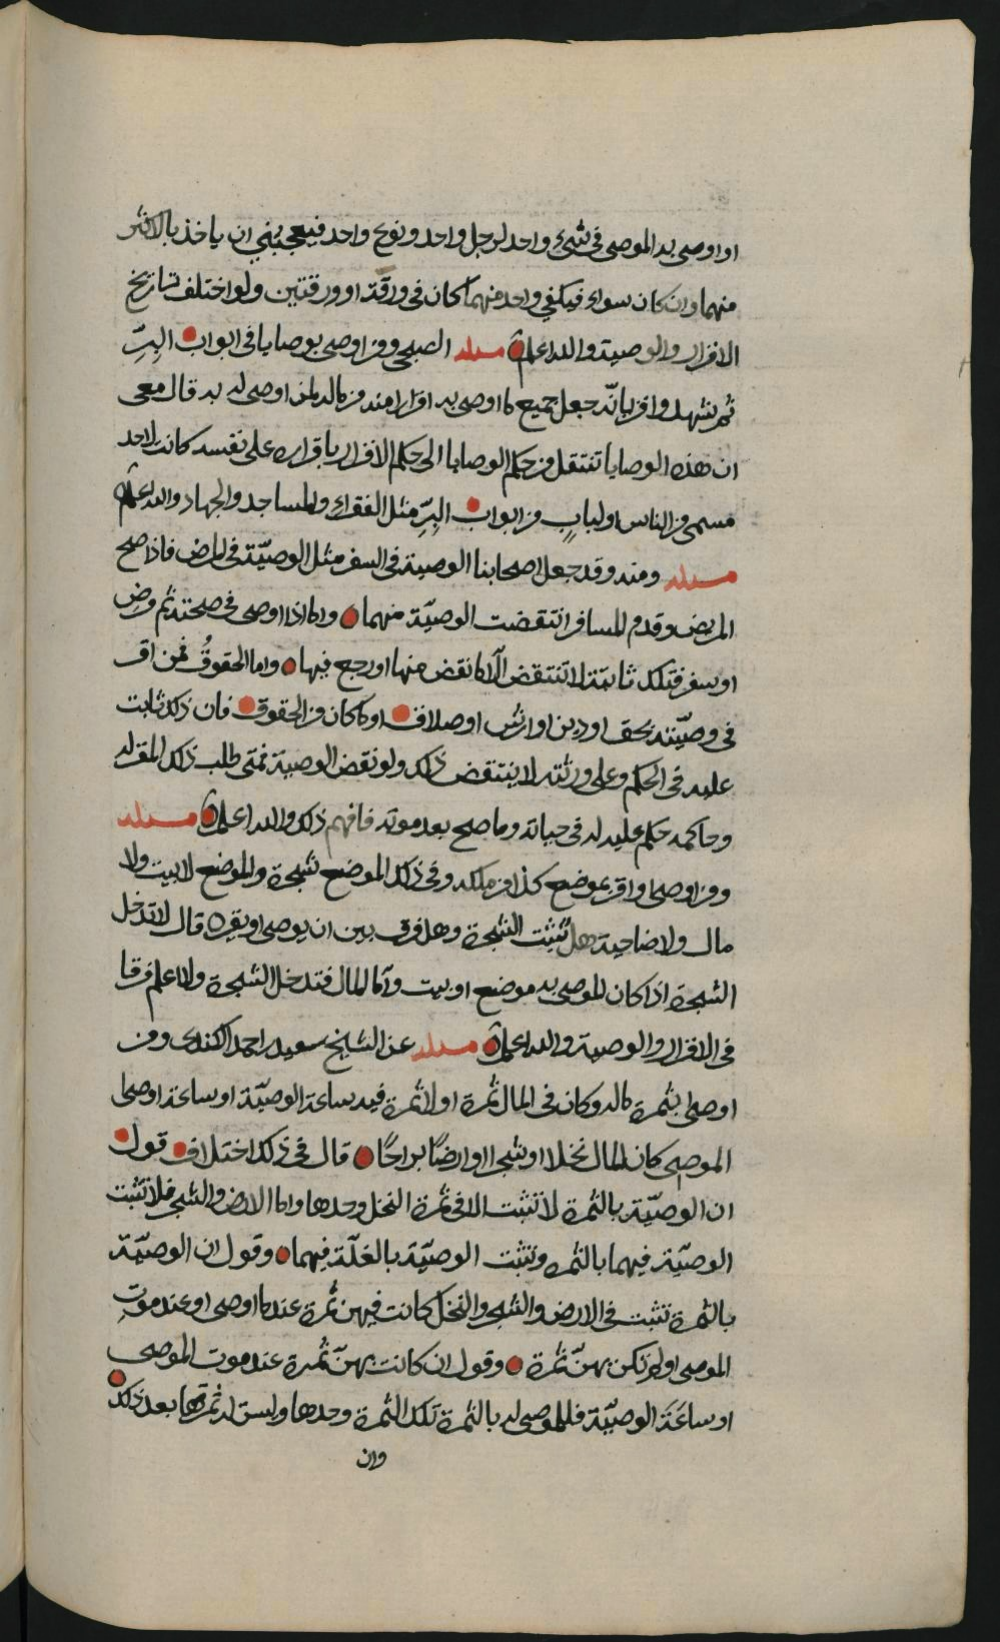 او اوصى به الموصي في شيء واحد لرجل واحد ونوع واحد فيعجبني ان ياخذ بالاكثر
منهما وان كان سواء فيكفي واحد منهما كان في ورقة او ورقتين ولو اختلف تاريخ
الاقرار والوصية والله اعلم مسئلة الصبحي ومن اوصى بوصايا في ابواب البِرّ
ثم شهد واقر بانّه جعل جميع ما اوصى به اقرارا منه من ماله لمن اوصى له به قال معي
ان هذه الوصايا تنتقل من حكم الوصايا الى حكم الاقرار باقراره على نفسه كانت لاحد
مسمى من الناس او لبابٍ من ابواب البِرّ مثل الفقراء والمساجد والجهاد والله اعلم
مسئلة ومنه وقد جعل اصحابنا الوصية في السفر مثل الوصيّة في المرض فاذا صح
المريض وقدم المسافر انتقضت الوصيّة منهما واما اذا اوصى في صحته ثم مرض
او سفر فتلك ثابتة لا تنتقض الّا ما نقض منها او رجع فيها واما الحقوقُ فمن اقر
في وصيّته بحق او دين او ارش او صداق او ما كان من الحقوق فان ذلك ثابت
عليه في الحكم وعلى ورثته لا ينتقض ذلك ولو نقض الوصية فمتى طلب ذلك المقر له
وحاكمه حكم عليه له في حياته وما صح بعد موته فافهم ذلك والله اعلم مسئلة
ومن اوصى او اقر بموضع كذا من ملكه وفي ذلك الموضع شجرة والموضع لا بيت ولا
مال ولا ضاحية هل تثبت الشجرة وهل فرق بين ان يوصى او يقر ه قال لا تدخل
الشجرة اذا كان الموصى به موضع او بيت وامّا المال فتدخل الشجرة ولا اعلم فرقا
في الاقرار والوصية والله اعلم مسئلة عن الشيخ سعيد احمد الكندى ومن
اوصى بثمرة ماله وكان في المال ثمرة او لا ثمرة فيه ساعة الوصيّة او ساعة اوصى
الموصي كان المال نخلا او شجرا او ارضًا براحًا قال في ذلك اختلاف قول
ان الوصيّة بالثمرة لا تثبت الا في ثمرة النخل وحدها واما الارض والشجر فلا تثبت
الوصيّة فيهما بالثمره وتثبت الوصيّة بالغلّة فيهما وقول ان الوصيّة
بالثمرة تثبت في الارض والشجر والنخل كانت فيهن ثمرة عند ما اوصى او عند موتِ
الموصي او لم تكن بهنّ ثمرة وقول ان كانت بهنّ ثمرة عند موت الموصي
او ساعَةَ الوصيّة فللموصى له بالثمرة تلك الثمرة وحدها وليس له ثمرتها بعد ذلك
وان